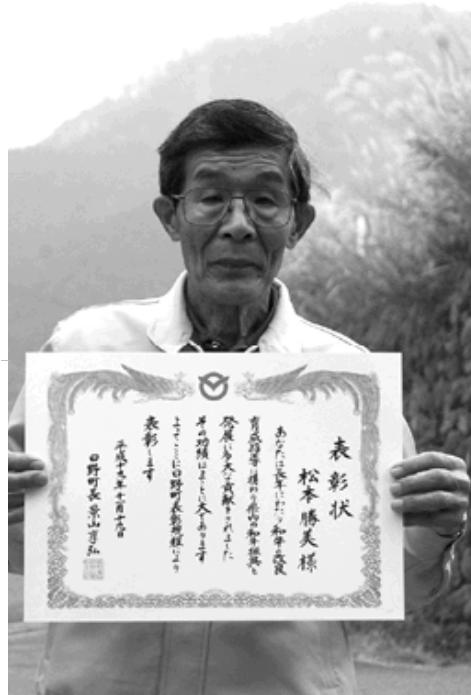 表彰状
松本勝美様
あなたは長年にわたり和牛の改良
育成指導に携わり県内の和牛振興と
発展に多大な貢献をされました
その功績はまことに大であります
よってここに日野町表彰規程により
表彰します
平成十九年十一月十九日
日野町長 景山享弘